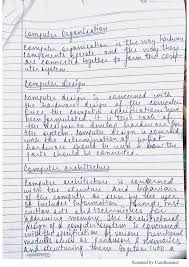 Computer Organisation
Computer organisation is the way hardware
components operate and the way they
are connected together to form the comp
uter system.
Computer Design
Computer design is concerned with
the hardware design of the computer
once the computer specifications have
been formulated. It is the task of
the designer to develop hardware for
the system. Computer design is concerned
with the determination of what
hardware should be used & how the
parts should be connected.
Computer architecture
Computer architecture is concerned
with the structure and behaviour
of the computer as seen by the user.
It includes information
and techniques for
memory. The architectural
design of a computer system is concerned
with the specification of various functional
modules such as processors & memories
and structuring them together into
Scanned by CamScanner